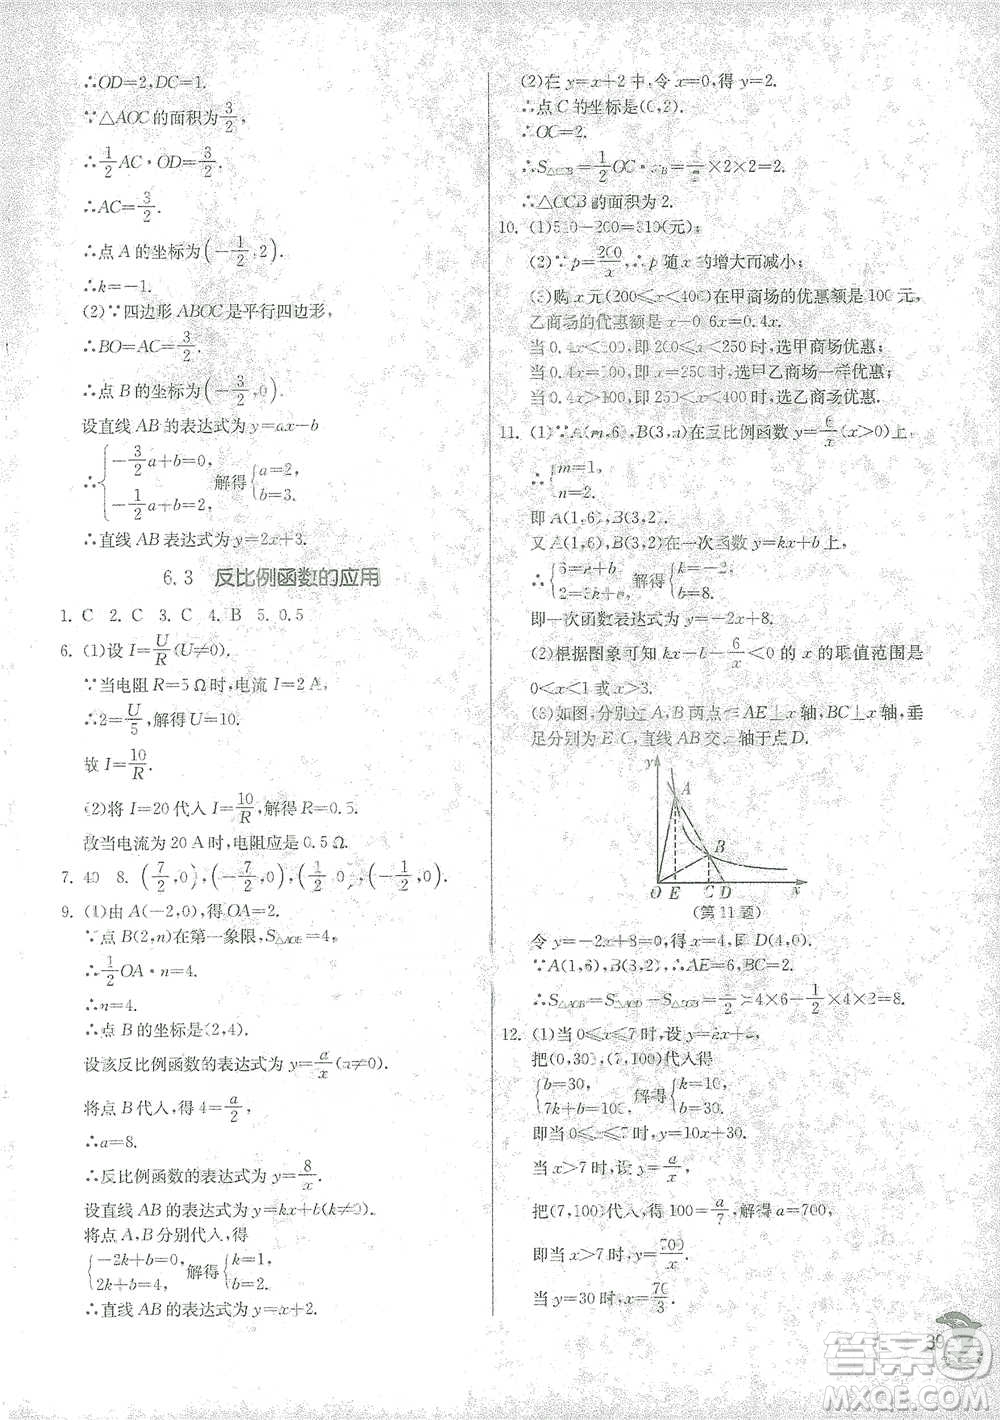 ∴OD=2,DC=1.
∵△AOC的面积为3/2,
∴1/2 AC·OD=3/2.
∴AC=3/2.
∴点A的坐标为(-1/2,2).
∴k=-1.
(2)∵四边形ABOC是平行四边形,
∴BO=AC=3/2.
∴点B的坐标为(-3/2,0).
设直线AB的表达式为y=ax+b
∴{-3/2 a+b=0, -1/2 a+b=2, 解得{a=2, b=3.
∴直线AB表达式为y=2x+3.
6.3 反比例函数的应用
1. C 2. C 3. C 4. B 5. 0.5
6. (1)设I=U/R(U≠0).
∵当电阻R=5 Ω时,电流I=2 A,
∴2=U/5,解得U=10.
故I=10/R.
(2)将I=20代入I=10/R,解得R=0.5.
故当电流为20 A时,电阻应是0.5 Ω.
7. 40 8. (7/2,0),(-7/2,0),(1/2,0),(-1/2,0).
9. (1)由A(-2,0),得OA=2.
∵点B(2,n)在第一象限,S△AOB=4,
∴1/2 OA·n=4.
∴n=4.
∴点B的坐标是(2,4).
设该反比例函数的表达式为y=a/x(a≠0).
将点B代入,得4=a/2,
∴a=8.
∴反比例函数的表达式为y=8/x.
设直线AB的表达式为y=kx+b(k≠0).
将点A,B分别代入,得
{-2k+b=0, 2k+b=4, 解得{k=1, b=2.
∴直线AB的表达式为y=x+2.
(2)在y=x+2中,令x=0,得y=2.
∴点C的坐标是(0,2).
∴OC=2.
∴S△OCB=1/2 OC·xB=1/2×2×2=2.
∴△OCB的面积为2.
10. (1)510-200=310(元);
(2)∵p=200/x,∴p随x的增大而减小;
(3)购x元(200≤x<400)在甲商场的优惠额是100元,
乙商场的优惠额是x-0.6x=0.4x.
当0.4x<100,即200≤x<250时,选甲商场优惠;
当0.4x=100,即x=250时,选甲乙商场一样优惠;
当0.4x>100,即250<x<400时,选乙商场优惠.
11. (1)∵A(m,6),B(3,n)在反比例函数y=6/x(x>0)上,
∴{m=1, n=2.
即A(1,6),B(3,2).
又A(1,6),B(3,2)在一次函数y=kx+b上,
∴{6=k+b, 2=3k+b, 解得{k=-2, b=8.
即一次函数表达式为y=-2x+8.
(2)根据图象可知kx+b-6/x<0的x的取值范围是
0<x<1或x>3.
(3)如图,分别过A,B两点作AE⊥x轴,BC⊥x轴,垂
足分别为E,C,直线AB交x轴于点D.
y A B O E C D x
(第11题)
令y=-2x+8=0,得x=4,即D(4,0).
∵A(1,6),B(3,2),∴AE=6,BC=2.
∴S△AOB=S△AOD-S△BOD=1/2×4×6-1/2×4×2=8.
12. (1)当0≤x≤7时,设y=kx+b,
把(0,30),(7,100)代入得
{b=30, 7k+b=100, 解得{k=10, b=30.
即当0≤x≤7时,y=10x+30.
当x>7时,设y=a/x,
把(7,100)代入,得100=a/7,解得a=700,
即当x>7时,y=700/x.
当y=30时,x=70/3.
39
答案圈
MXQE.COM